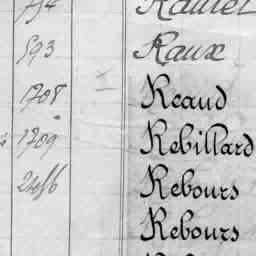 593 Raux
1708 Reaud
1709 Rebillard
2456 Rebours
Rebours